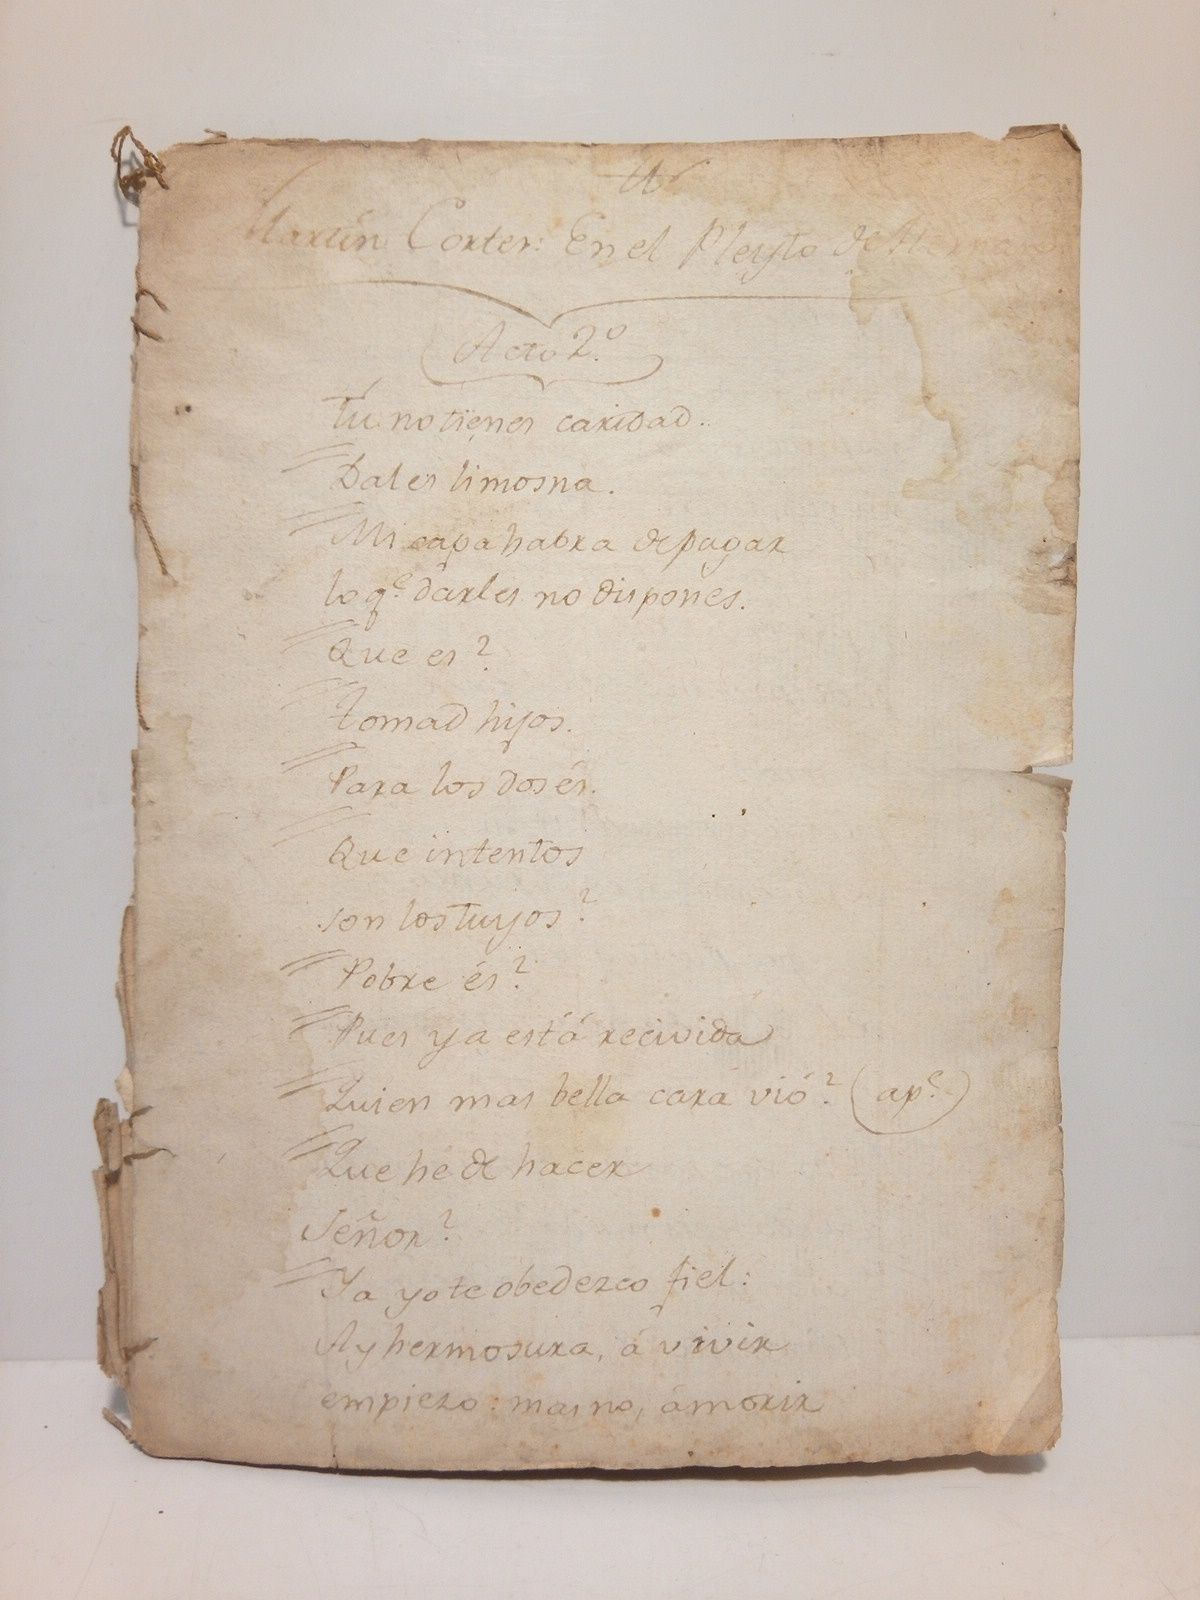 Martin Cortes: En el Pleyto de
Acto 2.º
Tu no tienes caridad.
Dales limosna.
Mi capa habra de pagar
lo q.e darles no dispones.
Que es?
Tomad hijos.
Para los dos és.
Que intentos
son los tuyos?
Pobre és?
Pues ya está recivida
Quien mas bella cara vió? (ap.e)
Que he de hacer
Señor?
Ya yo te obedezco fiel:
Ay hermosura, á vivir
empiezo: mas no, á morir